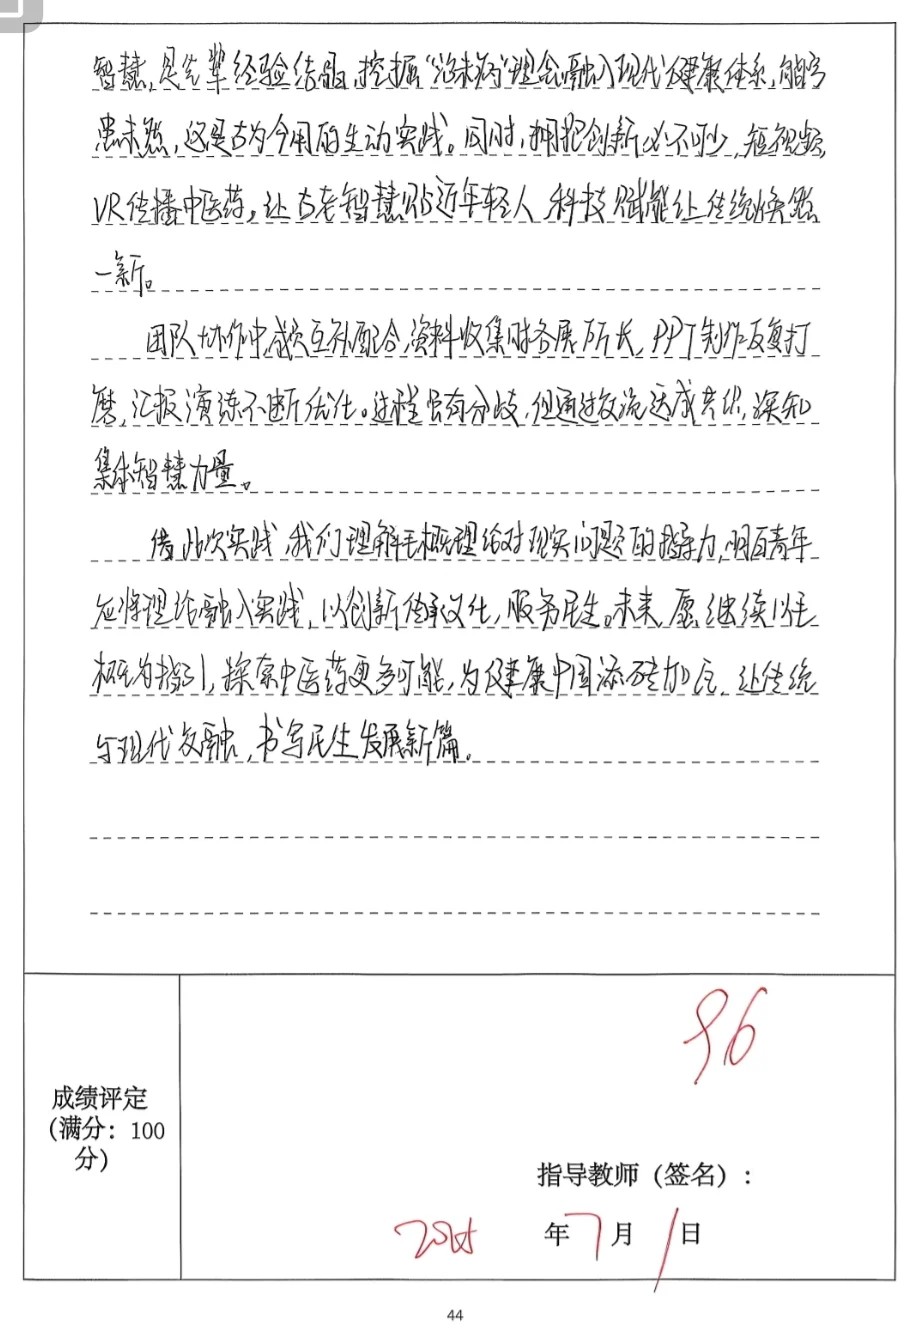 智慧,是先辈经验结晶,挖掘“治未病”理念融入现代健康体系,能防
患未然,这是古为今用的生动实践。同时,拥抱创新必不可少,短视频,
VR传播中医药,让古老智慧贴近年轻人,科技赋能让传统焕然
一新。
团队协作中,成员互补配合,资料收集时各展所长,PPT制作反复打
磨,汇报演练不断优化。过程曾有分歧,但通过交流达成共识,深知
集体智慧力量。
借此次实践,我们理解毛概理论对现实问题的指导力,明白青年
应将理论融入实践,以创新传承文化,服务民生。未来,愿继续以毛
概为指引,探索中医药更多可能,为健康中国添砖加瓦,让传统
与现代交融,书写民生发展新篇。
成绩评定
(满分:100
分)
96
指导教师(签名):
2025年7月1日
44